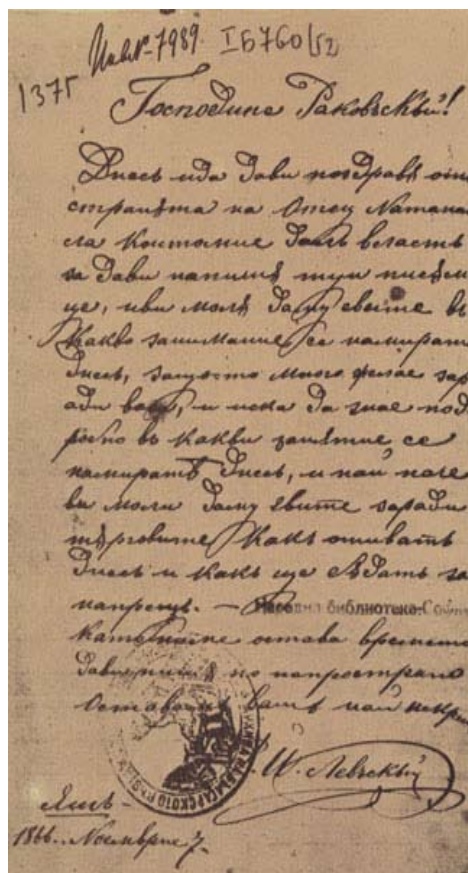 Инв. № 7989. I Б 760/52
137Г
Господине Раковскый!
Днесь ида дави поздравѣ отъ
странѣта на Отец Натана
ла Костомие далъ власть
за дави напишѫ туи писъм
це, иви молѭ даму евите въ
какво занимание се намирате
днесь, защото много желае зар
ади васъ, и иска да знае под
робно въ какви занятие се
намиратъ днесь, и най паче
ви моли даму явите заради
тѫрговите какъ отиватъ
днесь и какъ ще бѫдатъ за
напрець. — Народна библиотека-София
остава времето
дави пишѫ по напространо
Оставамъ вашъ най искр
Левскый
Яшъ -
1866. Ноемврие 7.